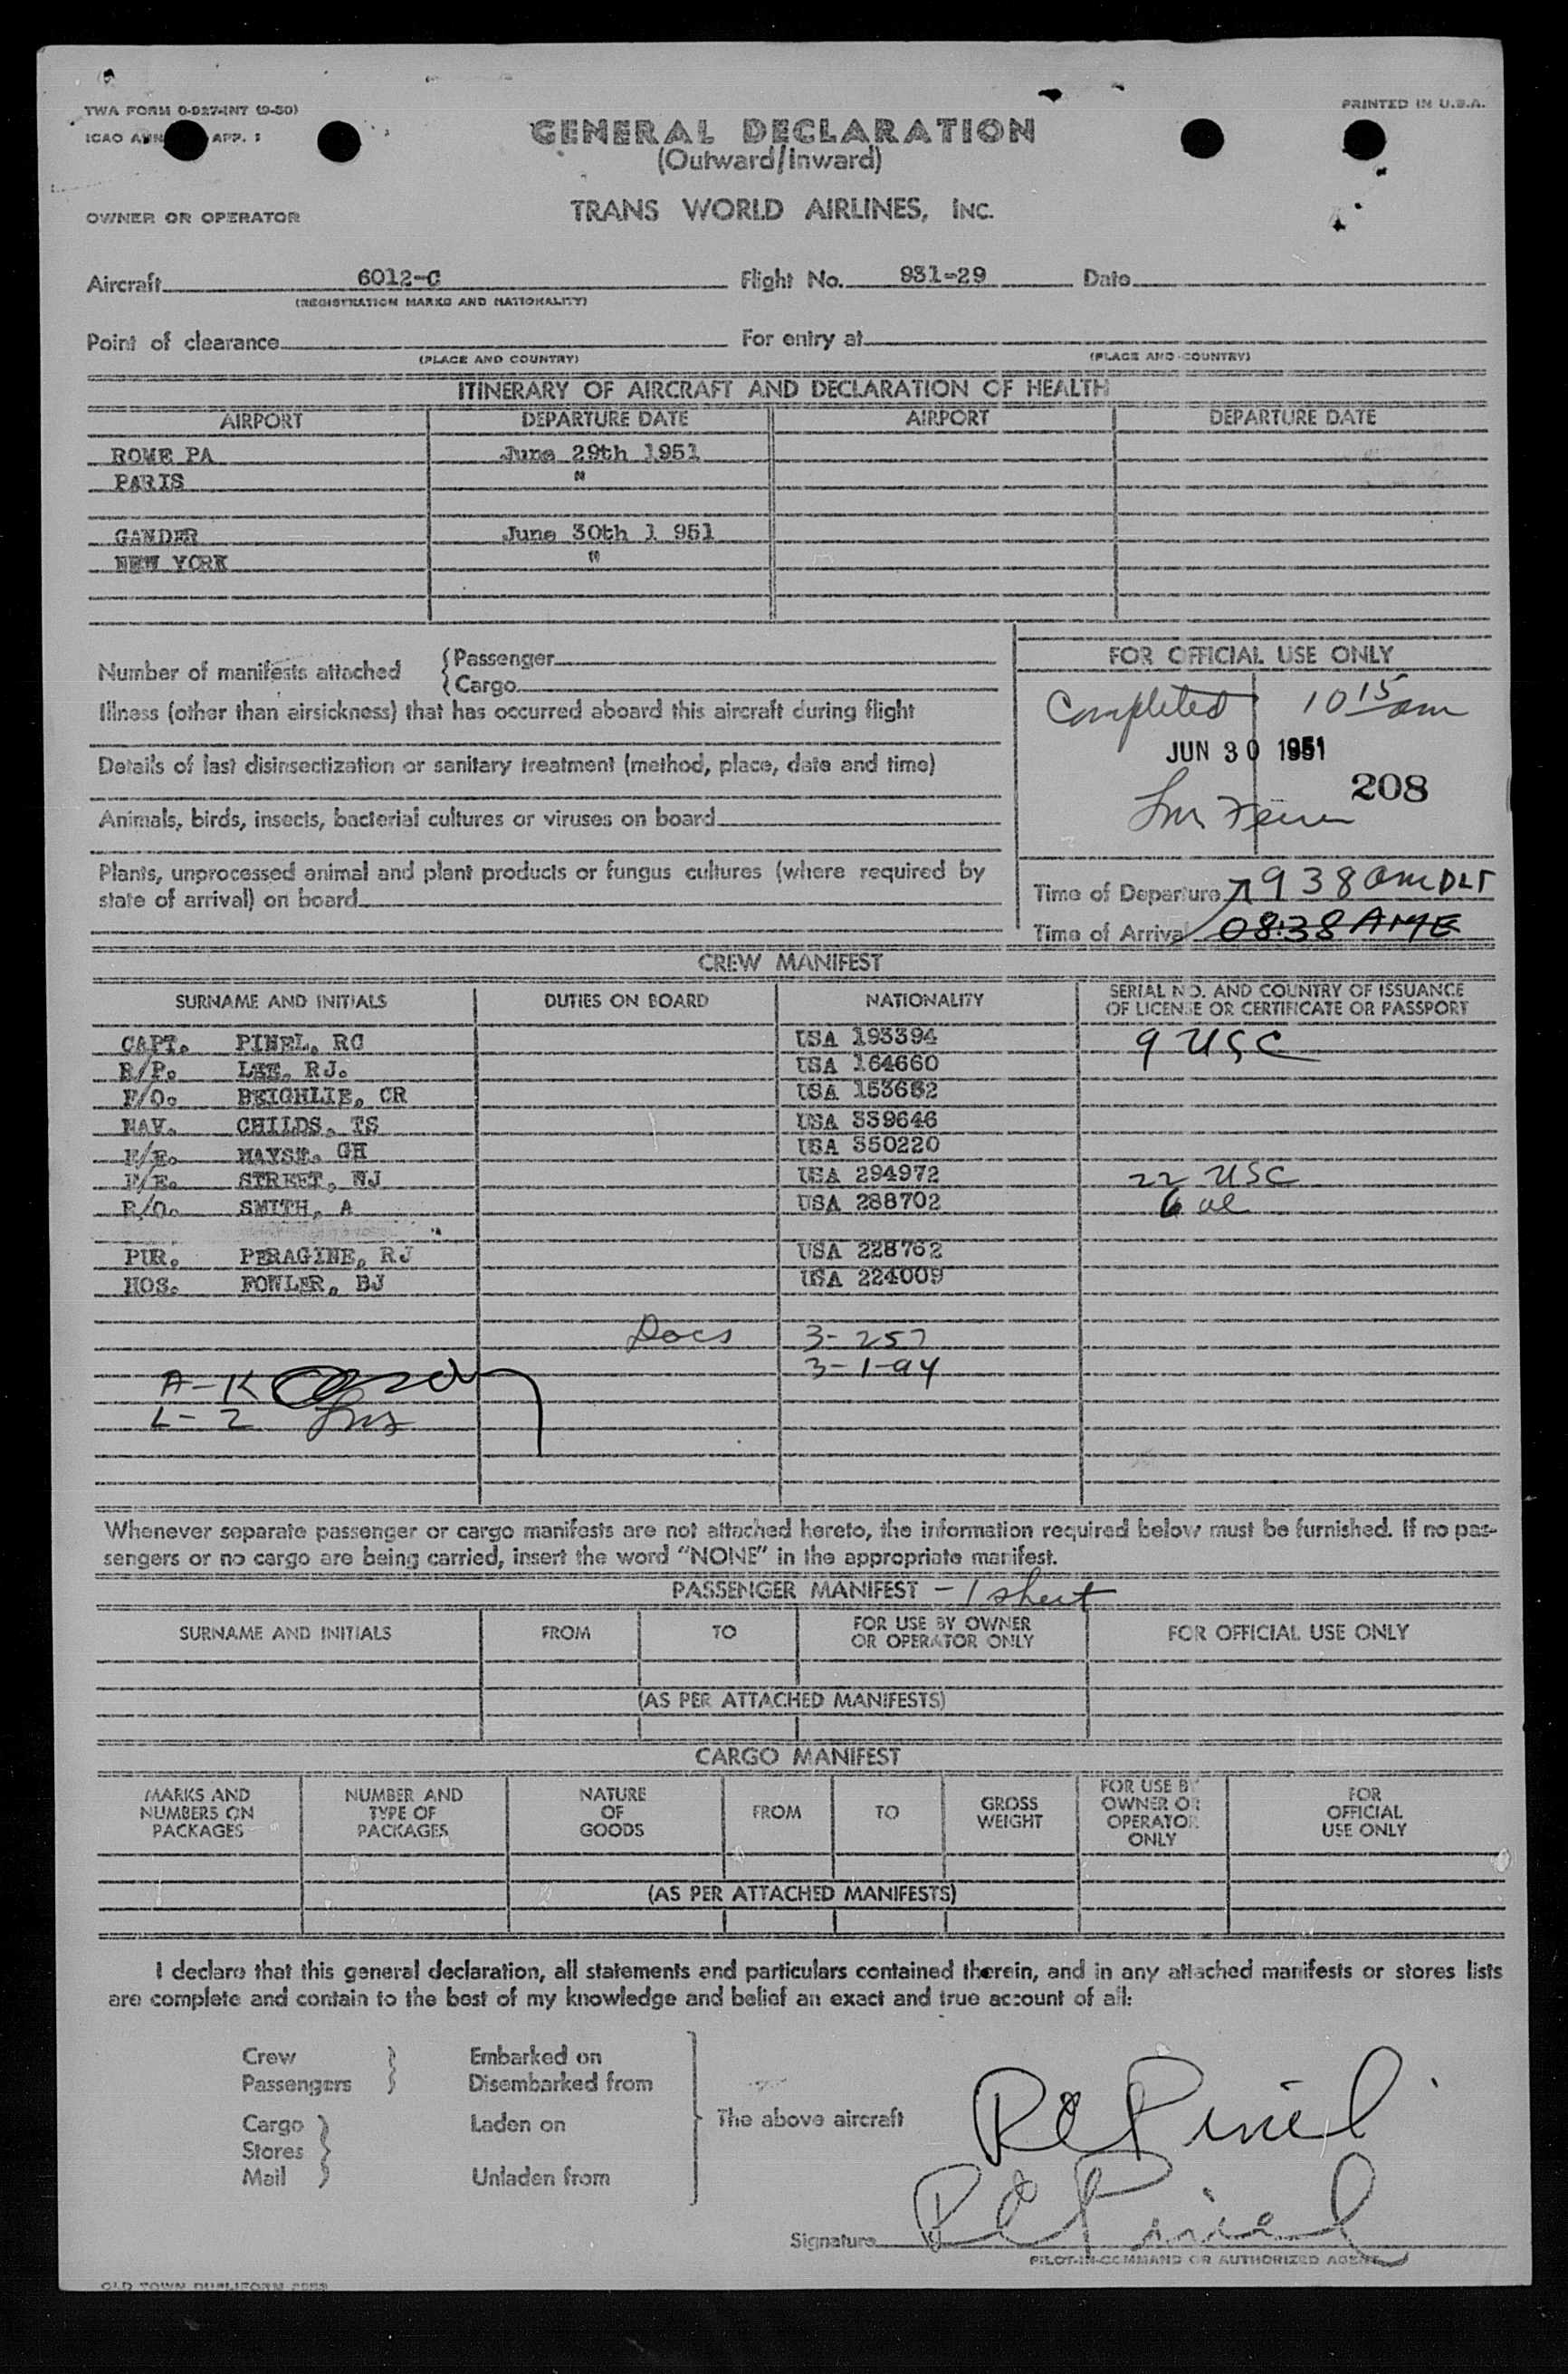 TWA FORM 0-927-INT (9-50)
PRINTED IN U.S.A.
ICAO APP. 1
GENERAL DECLARATION
(Outward/Inward)
OWNER OR OPERATOR
TRANS WORLD AIRLINES, INC.
Aircraft 6012-C Flight No. 931-29 Date
(REGISTRATION MARKS AND NATIONALITY)
Point of clearance For entry at
(PLACE AND COUNTRY) (PLACE AND COUNTRY)
ITINERARY OF AIRCRAFT AND DECLARATION OF HEALTH
AIRPORT DEPARTURE DATE AIRPORT DEPARTURE DATE
ROME PA June 29th 1951
PARIS "
GANDER June 30th 1 951
NEW YORK "
Number of manifests attached { Passenger
{ Cargo
FOR OFFICIAL USE ONLY
Completed 10 15 am
JUN 30 1951
208
Illness (other than airsickness) that has occurred aboard this aircraft during flight
Details of last disinsectization or sanitary treatment (method, place, date and time)
Animals, birds, insects, bacterial cultures or viruses on board
Plants, unprocessed animal and plant products or fungus cultures (where required by
state of arrival) on board
Time of Departure 938 am DLT
Time of Arrival 08:38 AME
CREW MANIFEST
SURNAME AND INITIALS DUTIES ON BOARD NATIONALITY SERIAL NO. AND COUNTRY OF ISSUANCE
OF LICENSE OR CERTIFICATE OR PASSPORT
CAPT. PINEL, RC USA 193394 9 USC
R/P. LEE, RJ. USA 164660
F/O. BEIGHLIE, CR USA 153682
NAV. CHILDS, TS USA 339646
F/E. MAYSE, GH USA 350220
F/E. STREET, WJ USA 294972 22 USC
R/O. SMITH, A USA 288702 6 al
PUR. PERAGINE, RJ USA 228762
HOS. FOWLER, BJ USA 224009
Docs 3-257
3-1-94
A-K
L-Z
Whenever separate passenger or cargo manifests are not attached hereto, the information required below must be furnished. If no pas-
sengers or no cargo are being carried, insert the word "NONE" in the appropriate manifest.
PASSENGER MANIFEST - 1 sheet
SURNAME AND INITIALS FROM TO FOR USE BY OWNER
OR OPERATOR ONLY FOR OFFICIAL USE ONLY
(AS PER ATTACHED MANIFESTS)
CARGO MANIFEST
MARKS AND
NUMBERS ON
PACKAGES
NUMBER AND
TYPE OF
PACKAGES
NATURE
OF
GOODS
FROM
TO
GROSS
WEIGHT
FOR USE BY
OWNER OR
OPERATOR
ONLY
FOR
OFFICIAL
USE ONLY
(AS PER ATTACHED MANIFESTS)
I declare that this general declaration, all statements and particulars contained therein, and in any attached manifests or stores lists
are complete and contain to the best of my knowledge and belief an exact and true account of all:
Crew Embarked on
Passengers Disembarked from
Cargo Laden on
Stores
Mail Unladen from
The above aircraft
RC Pinel
Signature RC Pinel
PILOT-IN-COMMAND OR AUTHORIZED AGENT
OLD TOWN DUPLIFORM